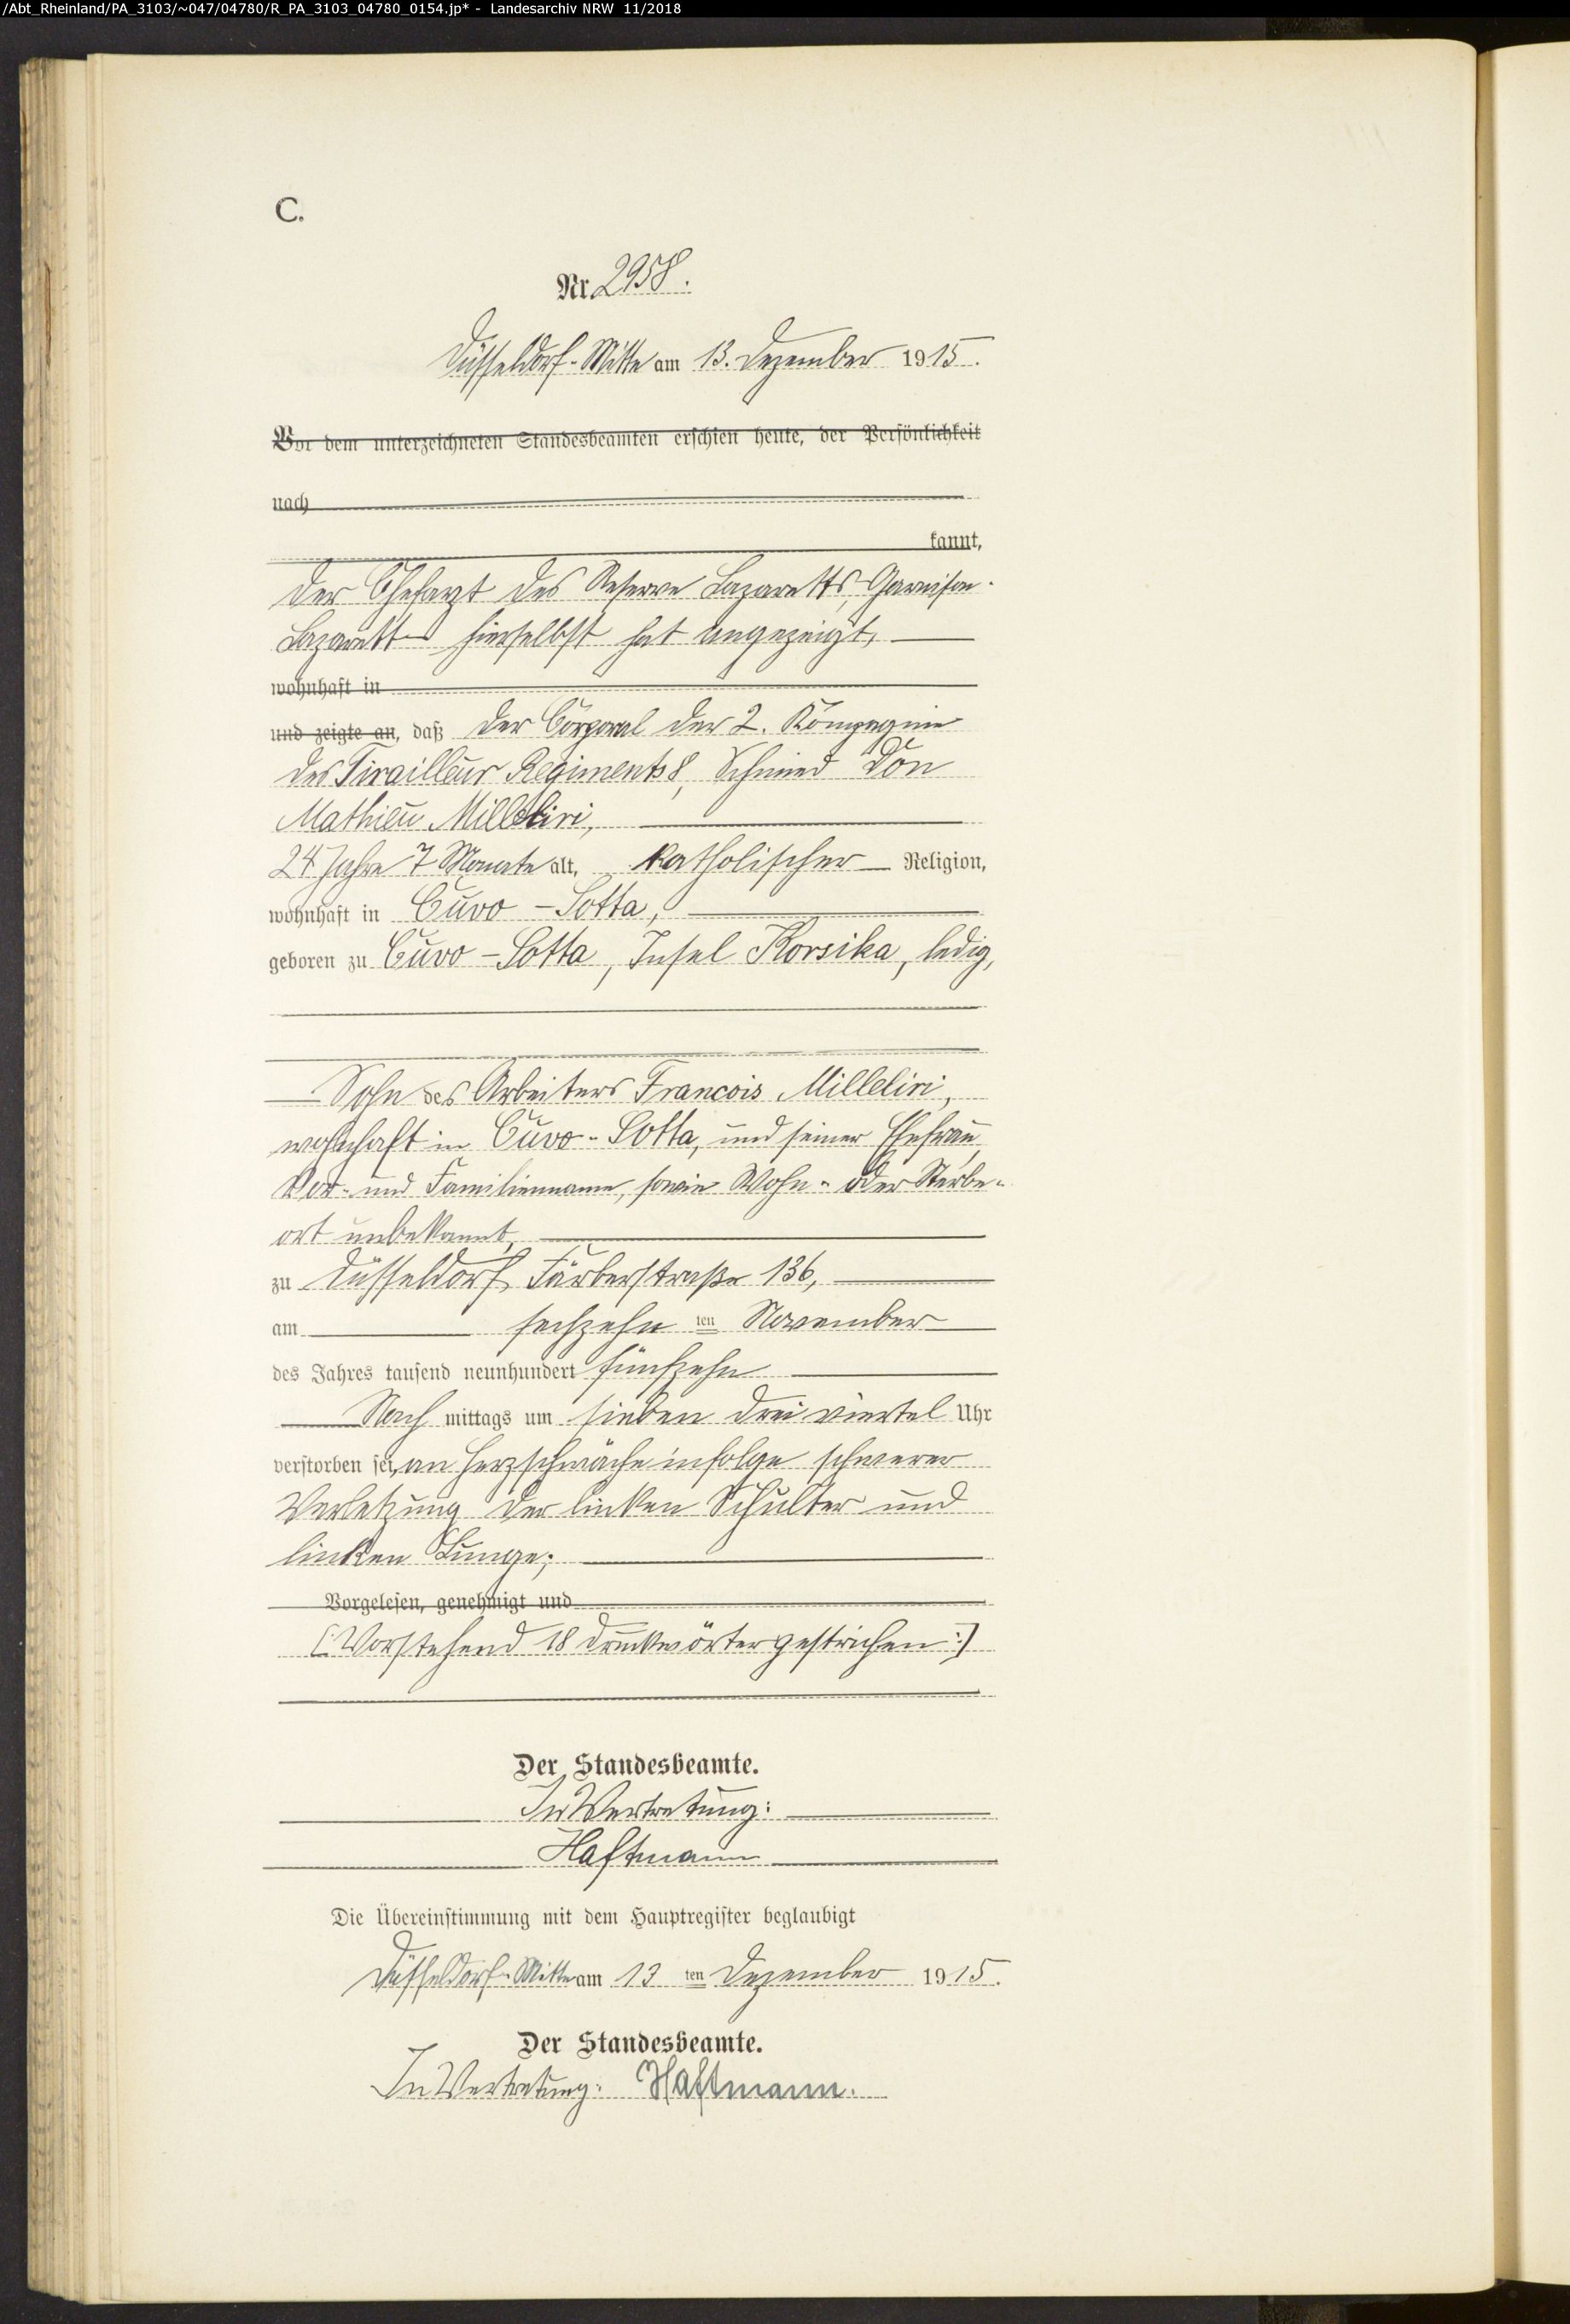 /Abt_Rheinland/PA_3103/~047/04780/R_PA_3103_04780_0154.jp* - Landesarchiv NRW 11/2018
C.
Nr. 2958.
Düsseldorf-Mitte am 13. Dezember 1915.
Vor dem unterzeichneten Standesbeamten erschien heute, der Persönlichkeit
nach
kannt,
der Chefarzt des Reserve Lazaretts, Garnison-
Lazarett hierselbst hat angezeigt,
wohnhaft in
und zeigte an, daß der Corporal der 2. Kompagnie
des Tirailleur Regiments 8, Schmied Don
Mathieu Milleliri,
24 Jahre 7 Monate alt, katholischer Religion,
wohnhaft in Cuvo-Sotta,
geboren zu Cuvo-Sotta, Insel Korsika, ledig,
Sohn des Arbeiters Francois Milleliri,
wohnhaft in Cuvo-Sotta, und seiner Ehefrau,
Vor- und Familienname, sowie Wohn- oder Sterbe-
ort unbekannt,
zu Düsseldorf, Färberstraße 136,
am sechzehn ten November
des Jahres tausend neunhundert fünfzehn
Nach mittags um sieben drei viertel Uhr
verstorben sei, an Herzschwäche infolge schwerer
Verletzung der linken Schulter und
linken Lunge;
Vorgelesen, genehmigt und
[: Vorstehend 18 Druckwörter gestrichen :]
Der Standesbeamte.
In Vertretung:
Haftmann
Die Übereinstimmung mit dem Hauptregister beglaubigt
Düsseldorf-Mitte am 13 ten Dezember 1915.
Der Standesbeamte.
In Vertretung: Haftmann.